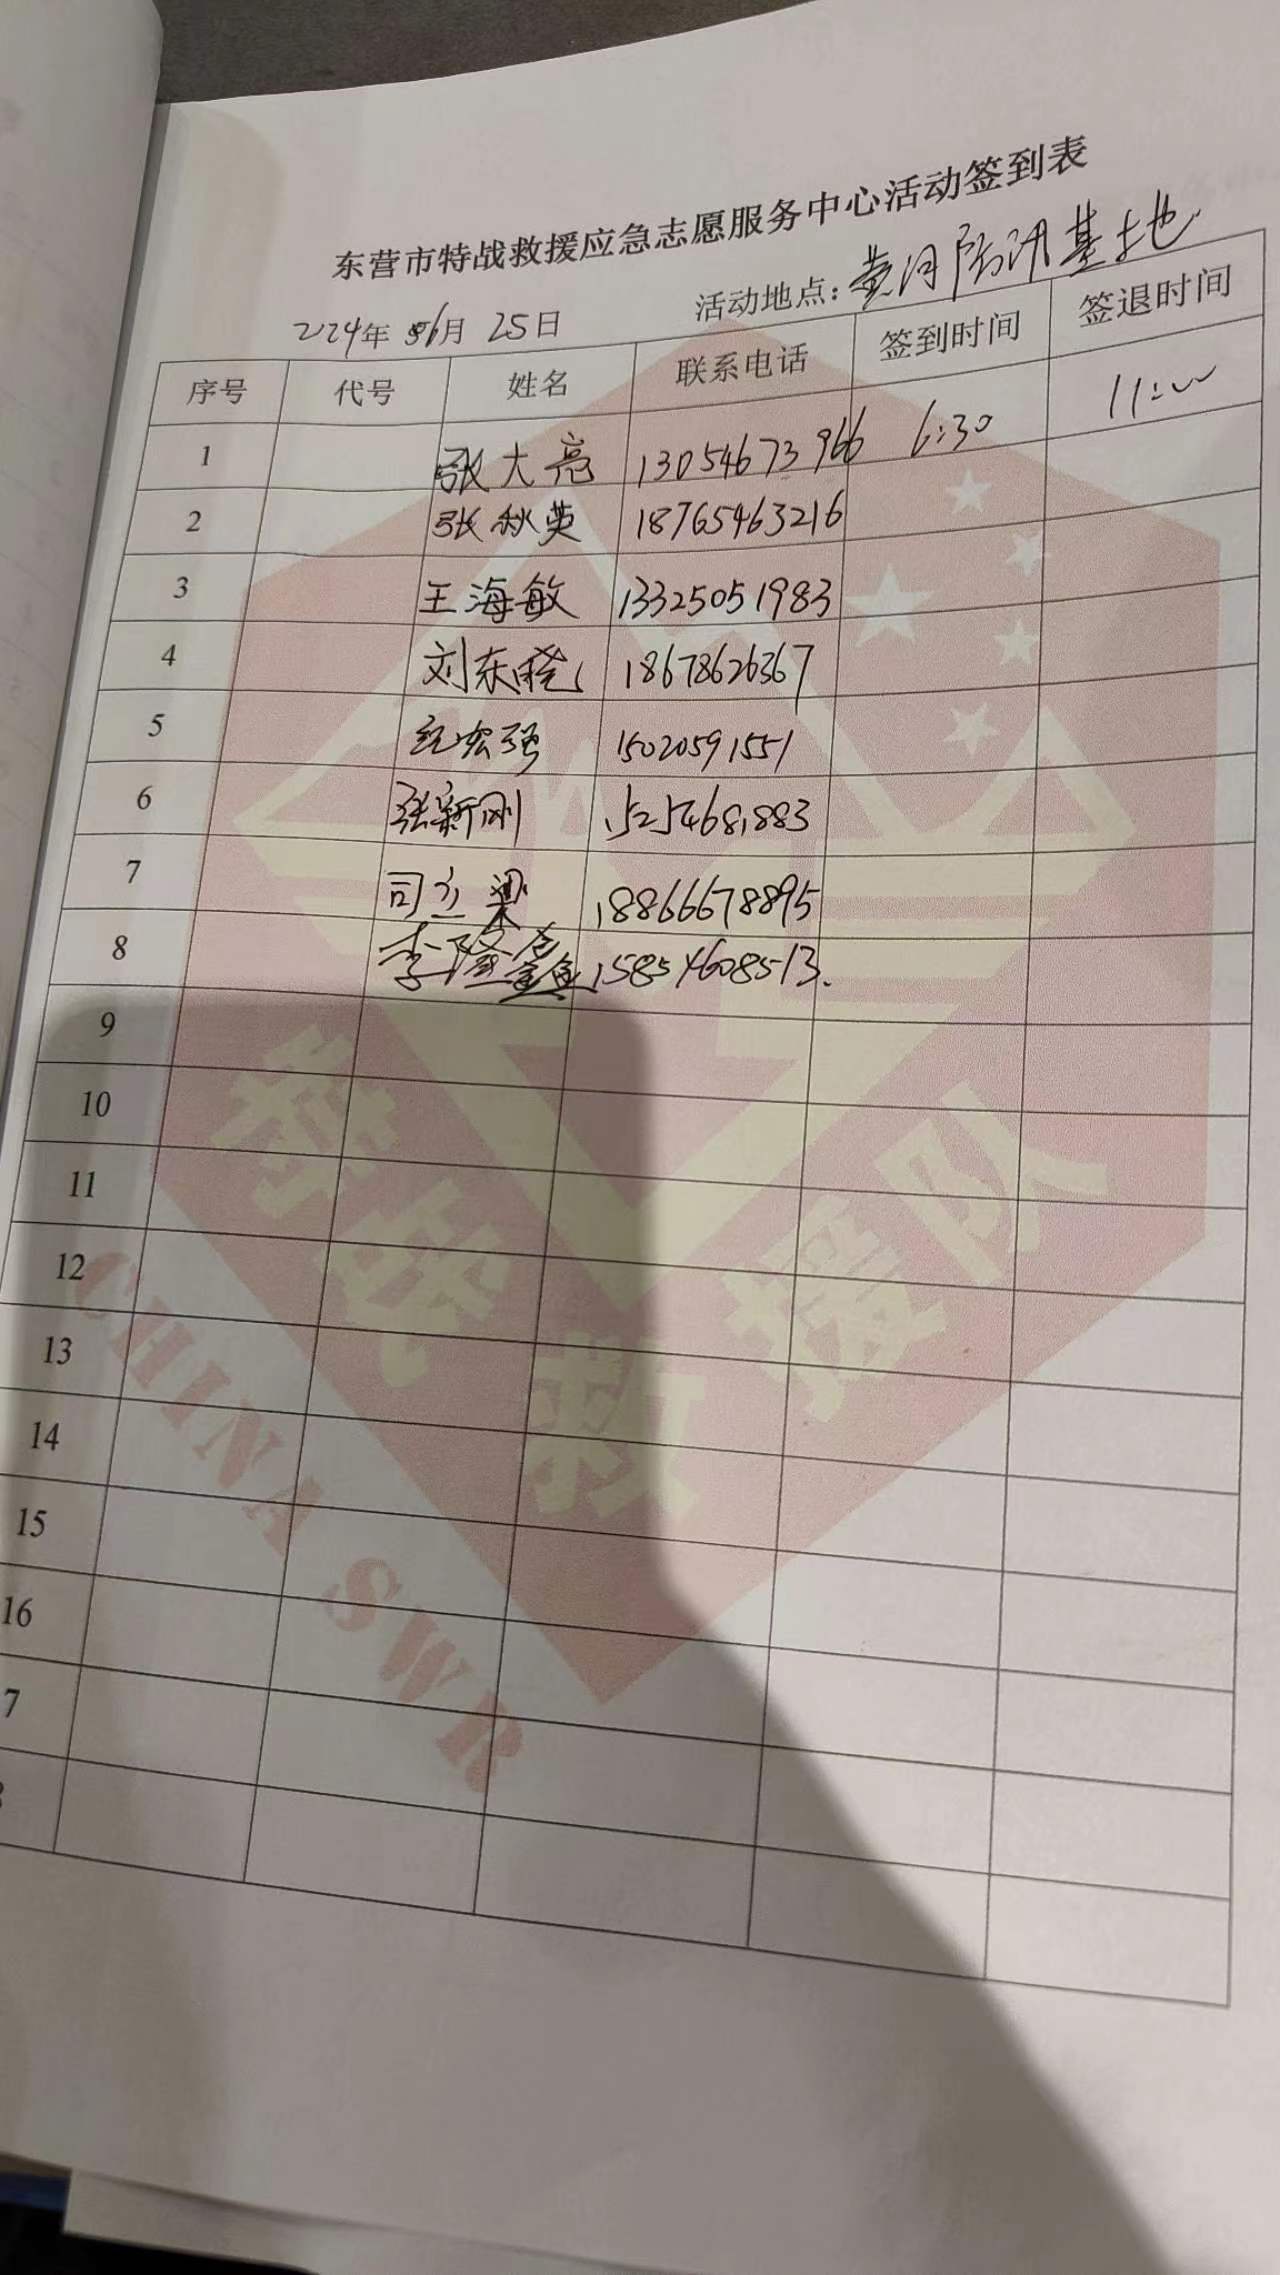 东营市特战救援应急志愿服务中心活动签到表
2024年 6月 25日 活动地点：黄河防汛基地
序号 代号 姓名 联系电话 签到时间 签退时间
1 张大亮 13054673966 6:30 11:00
2 张秋英 18765463216
3 王海敏 13325051983
4 刘东晓 18678626367
5 纪宏强 15020591551
6 张新刚 15254681883
7 司立梁 18866678895
8 李隆鑫 15854608513.
9
10
11
12
13
14
15
16
7
特战救援队
CHINA SWR